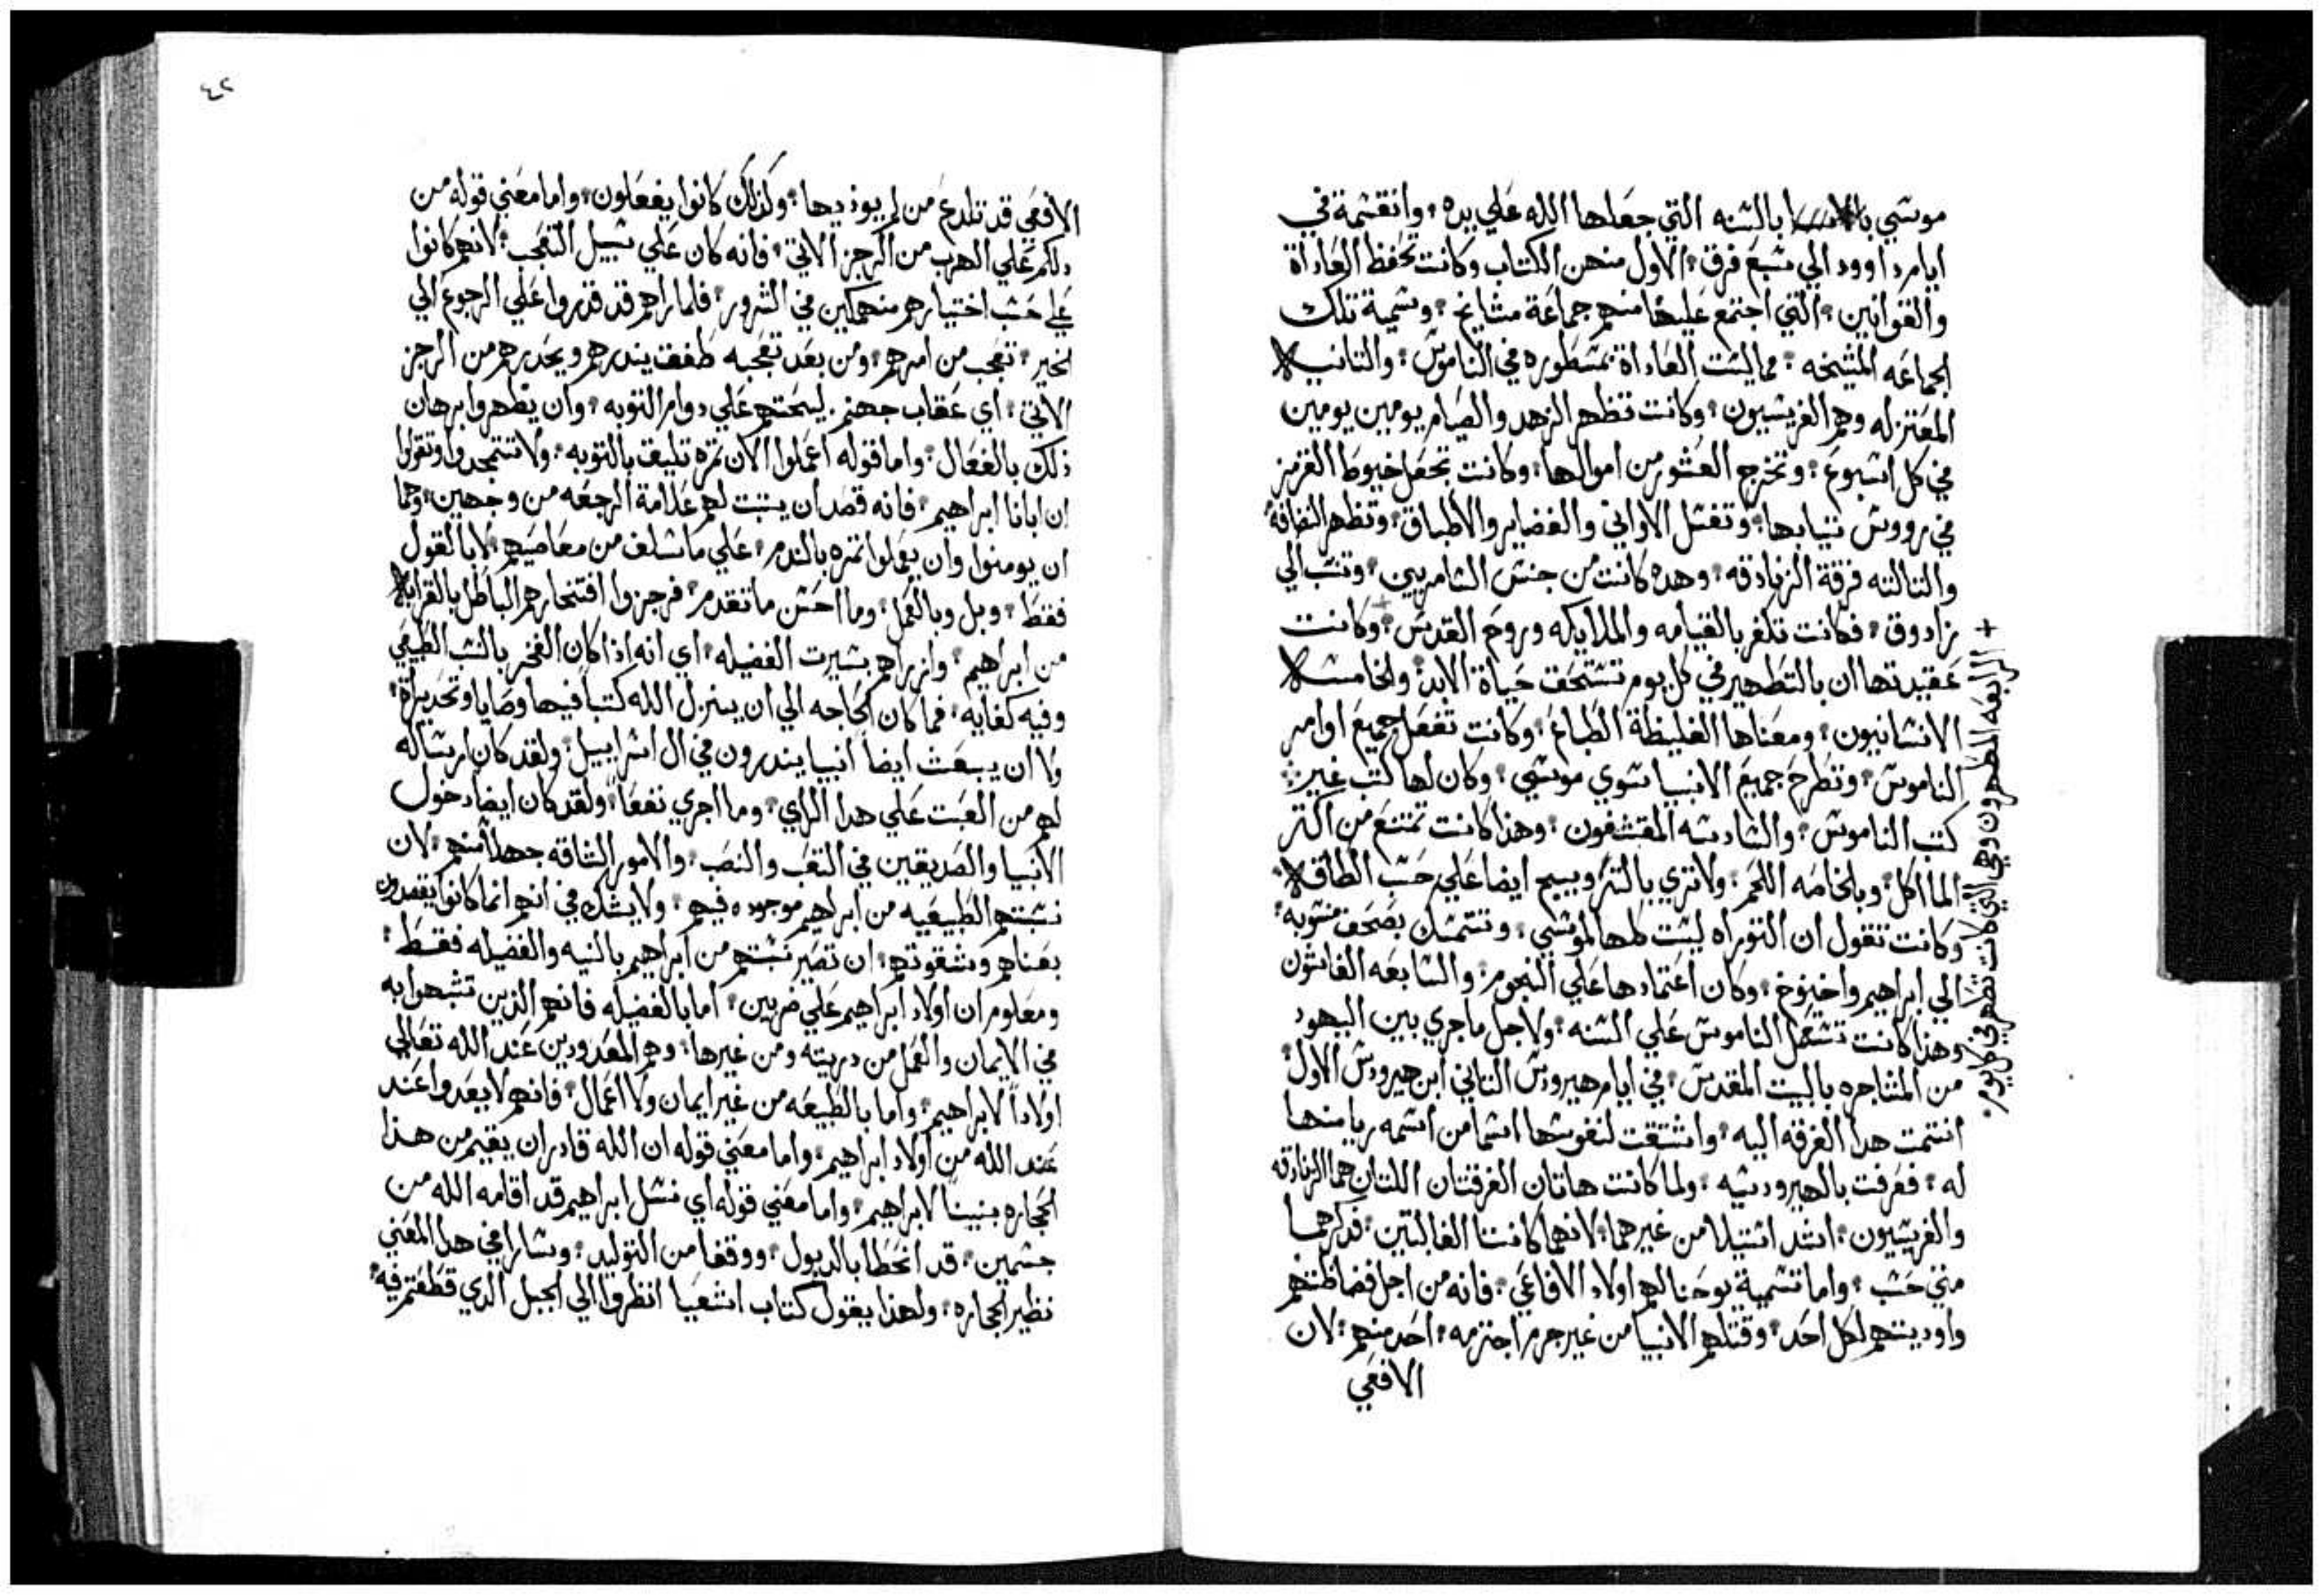 موسي بالسنه التي جعلها الله علي يده؛ وانقسمة في
ايام داوود الي سبع فرق؛ الاول منهن الكتاب وكانت تحفظ العاداة
والقوانين؛ التي اجتمع عليها منهم جماعة مشايخ؛ وسمية تلك
الجماعه المشيخه؛ مما ليست العاداة بمسطوره في الناموس؛ والتانيه
المعتزله وهم الفريسيون؛ وكانت تظهر الزهد والصيام يومين يومين
في كل اسبوع؛ وتخرج العشور من اموالها؛ وكانت تجعل خيوط القرمز
في رووس تيابها؛ وتغسل الاواني والغضاير والاطباق؛ وتظهر النضافة
والتالته فرقة الزنادقه؛ وهده كانت من جنس السامريين؛ وتنسب الي
زادوق؛ فكانت تكفر بالقيامه والملايكه وروح القدس؛ + وكانت
عقيدتها ان بالتطهير في كل يوم تستحق حياة الابد؛ والخامسه
الانسانيون؛ ومعناها الغليظة الطباع؛ وكانت تفعل جميع اوامر
الناموس؛ وتطرح جميع الانبيا سوي موسي؛ وكان لها كتب غير
كتب الناموس؛ والسادسه المقتشفون؛ وهذا كانت تمتنع من اكتر
الماأكل؛ وبالخاصه اللحم؛ ولا تري بالتزويج ايضا علي حسب الطاقه
وكانت تقول ان التوراه ليست كلها لموسي؛ وتتمسك بصحف منسوبه
الي ابراهيم واخنوخ؛ وكان اعتمادها علي النجوم؛ والسابعه الغاسلون
وهذا كانت تستعمل الناموس علي السنه؛ ولاجل ماجري بين اليهود
من المشاجره بالبيت المقدس؛ في ايام هيرودس التاني ابن هيرودس الاول
انتمت هدا الفرقه اليه؛ واشتقت لنفوسها اسما من اسمه ريا منها
له؛ فعرفت بالهيرودسيه؛ ولما كانت هاتان الفرقتان اللتان هما الزنادقه
والفريسيون؛ اشد استيلا من غيرهما؛ لانهما كانتا الغالبتين؛ فدكرهما
متي حسب؛ واما تسمية يوحنا لهم اولاد الافاعي؛ فانه من اجل فضاظتهم
واوديتهم لكل احد؛ وقتلهم الانبيا من غير جرم اجترمه؛ احد منهم؛ لان
الافعي
+ الرابعه المطهرون وهي التي كانت تطهر في كل يوم
٤٢
الافعي قد تلدع من لم يوذيها؛ وكذلك كانوا يفعلون؛ واما معني قوله من
دلكم علي الهرب من الرجز الاتي؛ فانه كان علي سبيل التعجب؛ لانهم كانوا
علي حسب اختيارهم منهمكين في الشرور؛ فلما راهم قد قدروا علي الرجوع الي
الخير؛ تعجب من امرهم؛ ومن بعد تعجبه طفقت يندرهم ويحدرهم من الرجز
الاتي؛ اي عقاب جهنم. ليحتهم علي دوام التوبه؛ وان يظهروا برهان
ذلك بالفعال؛ واما قوله اعملوا الان تمره تليق بالتوبه؛ ولا تستمجدوا وتقولوا
ان ابانا ابراهيم؛ فانه قصد ان يتبت لهم علامة الرجعه من وجهين؛ وهما
ان يومنوا وان يعملوا تمره بالندم؛ علي ما سلف من معاصيهم؛ لا بالقول
فقط؛ وبل وبالعمل؛ وما احسن ما تقدم؛ فرجزوا افتخارهم الباطل بالقرابه
من ابراهيم؛ وازراهم بسيرت الفضيله؛ اي انه اذا كان الفخر بالنسب الطبيعي
وفيه كفايه؛ فما كان الحاجه الي ان ينزل الله كتبا فيها وصايا وتحديراة؛
ولا ان يبعث ايضا انبيا يندرون في ال اسراييل؛ ولقد كان ارساله
لهم من العبت علي هدا الراي؛ وما اجري نفعا؛ ولقد كان ايضا دخول
الانبيا والصديقين في التعب والنصب؛ والامور الشاقه جهلا منهم؛ لان
نسبتهم الطبيعيه من ابراهيم موجوده فيهم؛ ولا يشك في انهم انما كانوا يقصدون
بعناهم وشقوتهم؛ ان تصير نسبتهم من ابراهيم بالنيه والفضيله فقط؛
ومعلوم ان اولاد ابراهيم علي ضربين؛ اما بالفضيله فانهم الذين تشبهوا به
في الايمان والعمل من دريته ومن غيرها؛ وهم المعدودين عند الله تعالي
اولاداً لابراهيم؛ واما بالطبيعه من غير ايمان ولا اعمال؛ فانهم لا يعدوا عند
عند الله من اولاد ابراهيم؛ واما معني قوله ان الله قادر ان يقيم من هذا
الحجاره بنينا لابراهيم؛ واما معني قوله اي نسل ابراهيم قد اقامه الله من
جسمين؛ قد انحطا بالدبول؛ ووقفا من التوليد؛ وسارا في هدا المعني
نظير الحجاره؛ ولهذا يقول كتاب اشعيا انظروا الي الجبل الدي قطعتم فيه؛